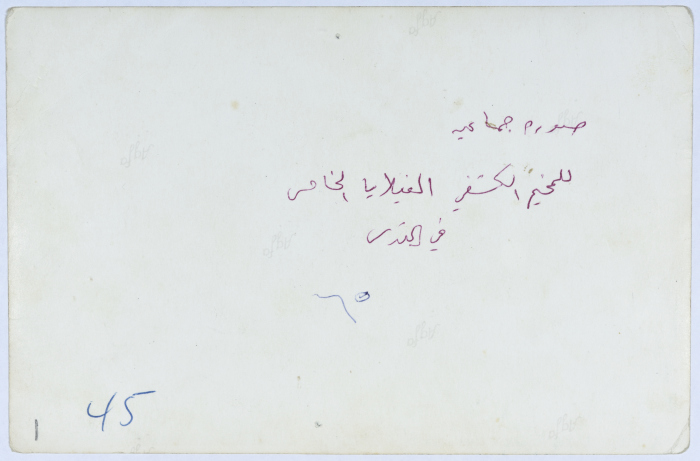 صوره جماعيه
للمخيم الكشفي الفيلايا الخامس
في القدس
٦٥
45